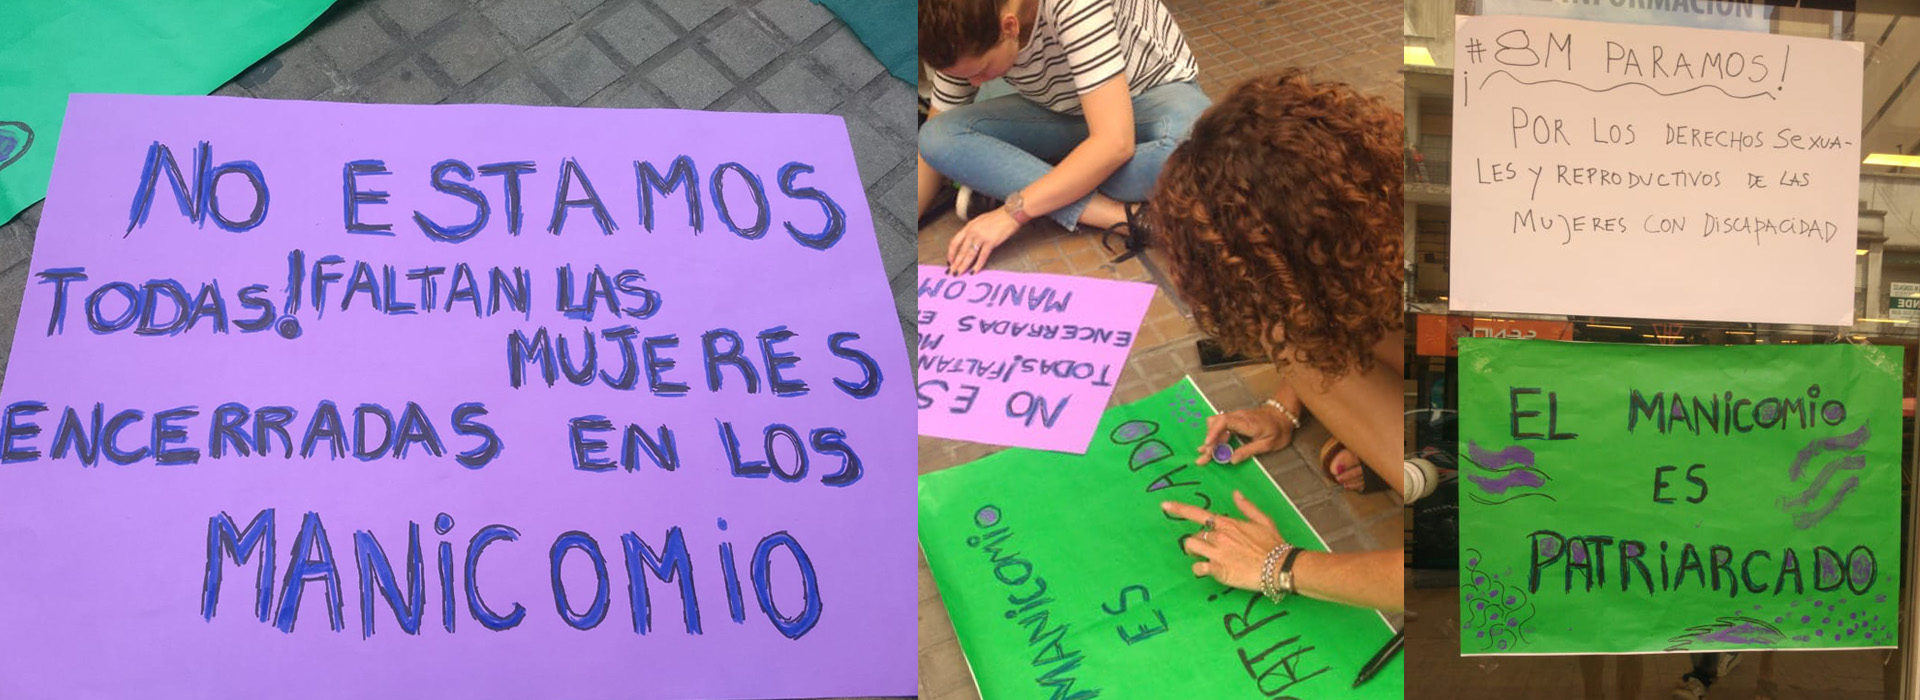 NO ESTAMOS
TODAS! FALTAN LAS
MUJERES
ENCERRADAS EN LOS
MANiCOMiO
NO ES
TODAS! FALTAN
MU
ENCERRADAS E
MANiCOM
MANiCOMiO
ES
PATRiARCADO
INFORMACIÓN
#8M PARAMOS!
¡
POR LOS DERECHOS SEXUA-
LES Y REPRODUCTIVOS DE LAS
MUJERES CON DISCAPACIDAD
EL MANiCOMiO
ES
PATRiARCADO